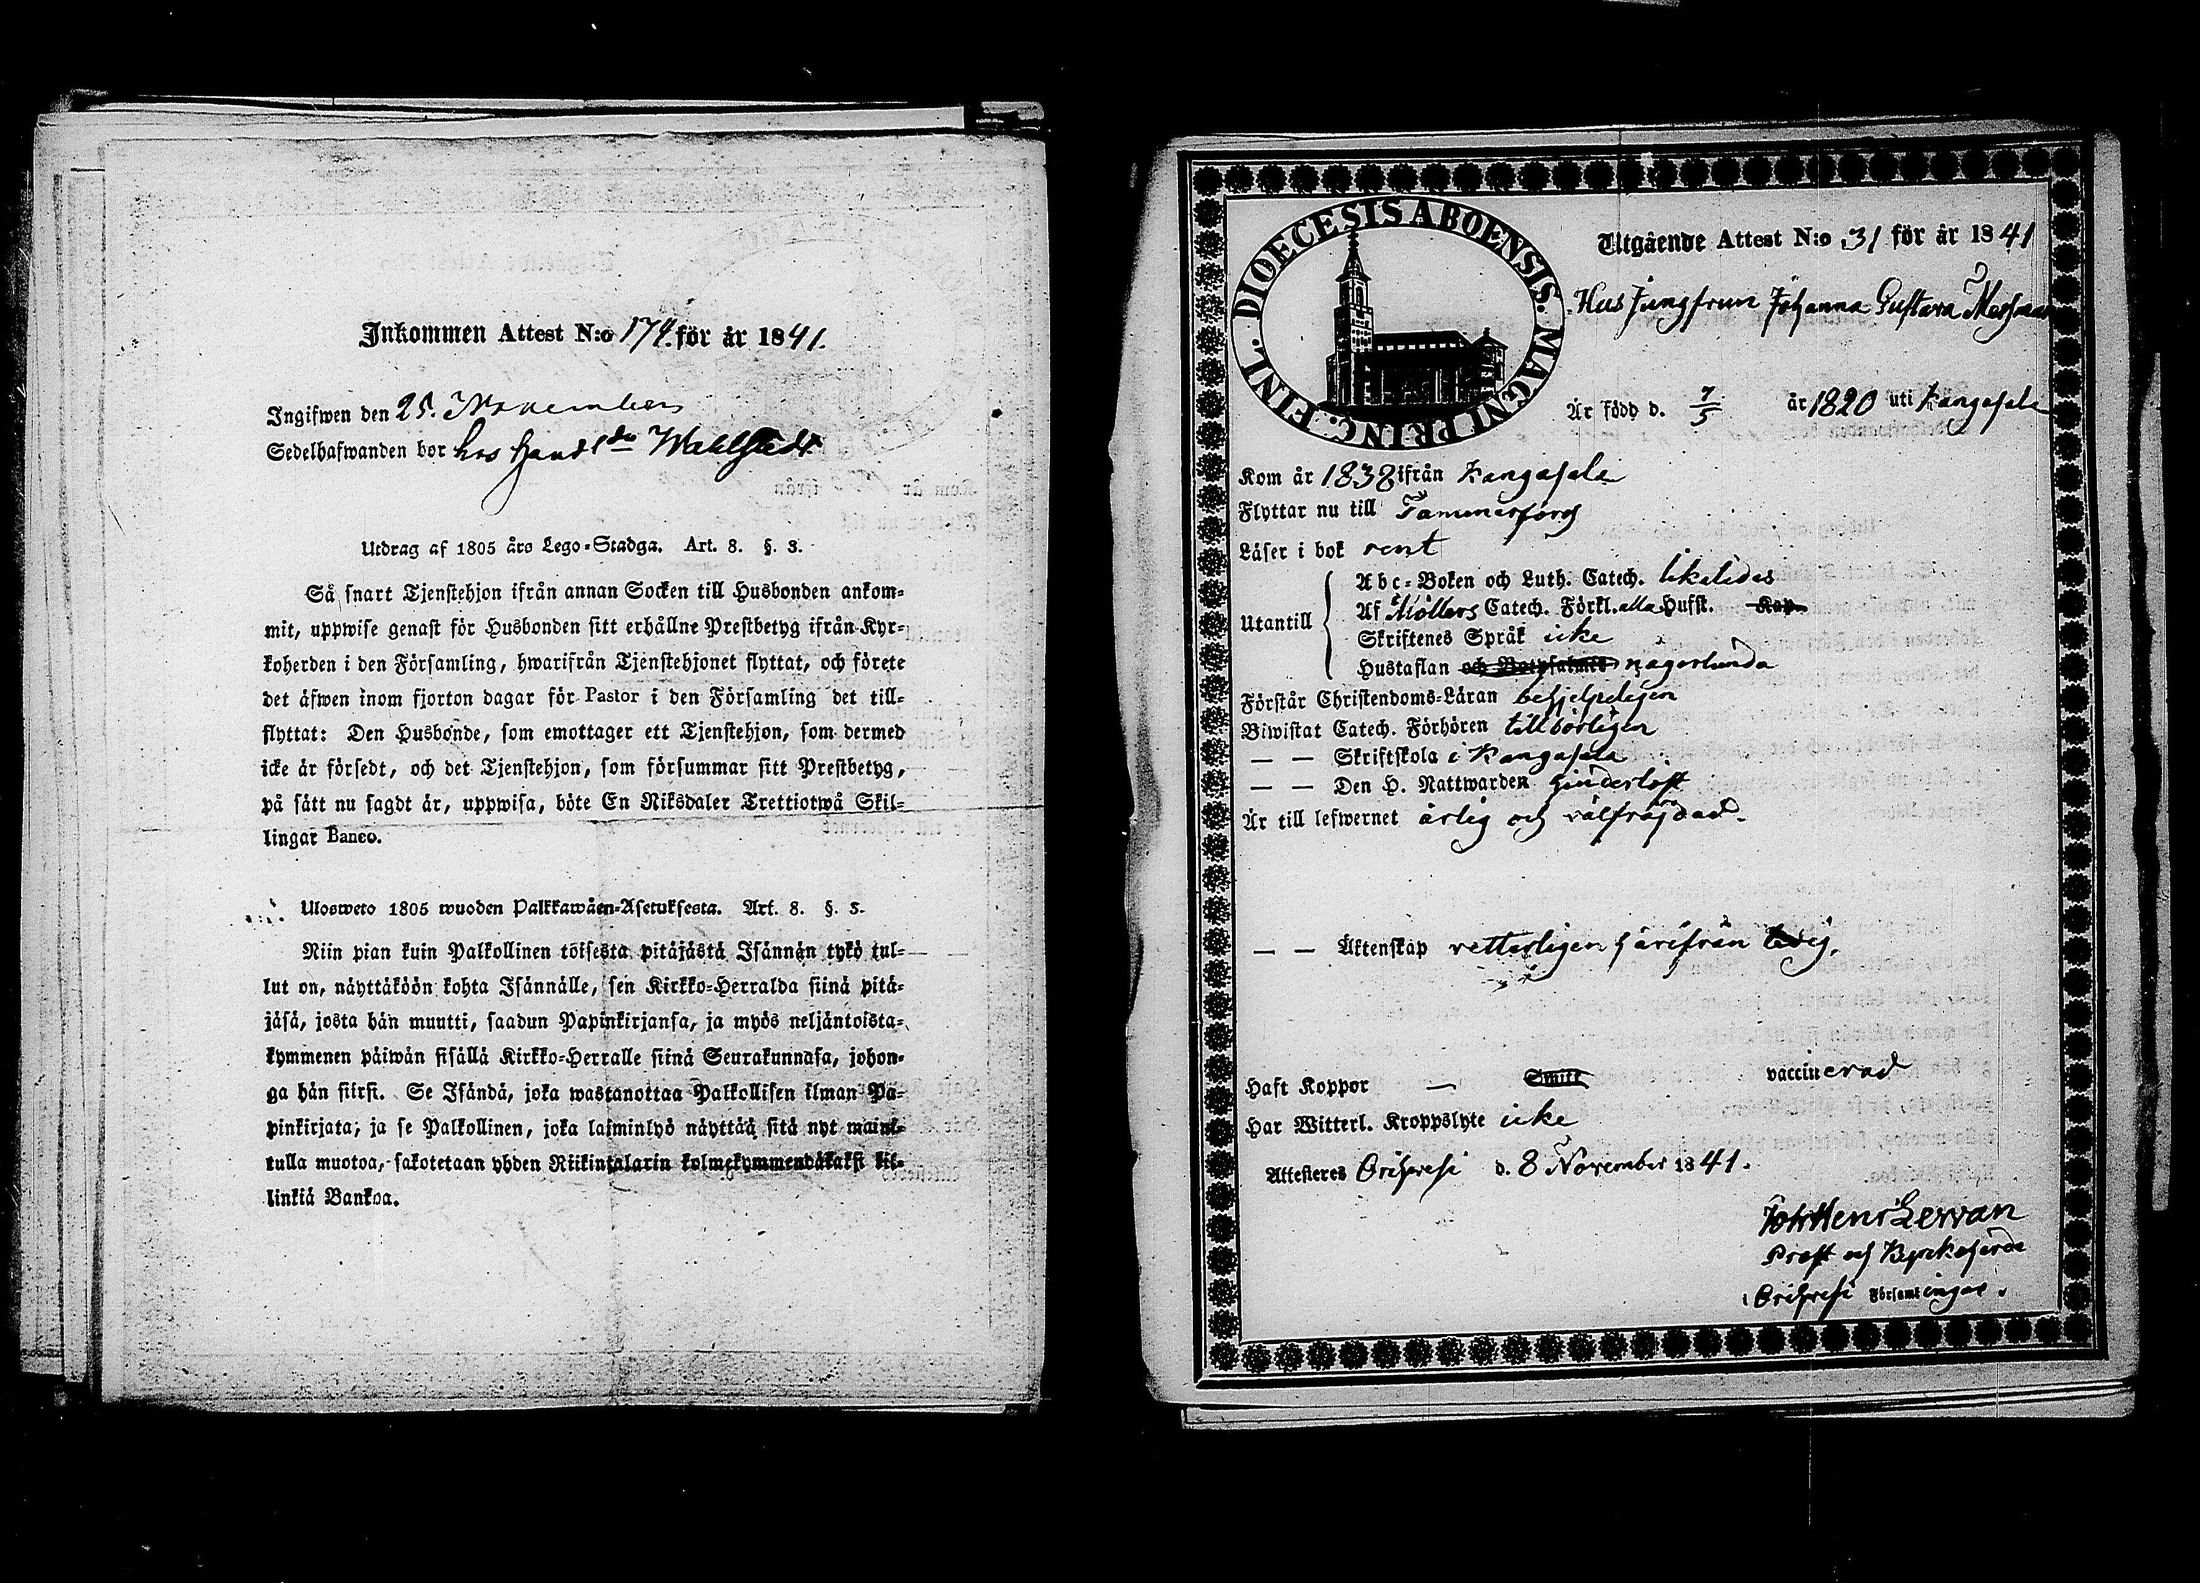 Inkommen Attest N:o 174. för år 1841.
Ingifwen den 25. November
Sedelhafwanden bor hos Handl. Wahlstedt
Utdrag af 1805 års Lego-Stadga. Art. 8. §. 3.
Så snart Tjenstehjon ifrån annan Socken till Husbonden ankom-
mit, uppwise genast för Husbonden sitt erhållne Prestbetyg ifrån Kyr-
koherden i den Församling, hwarifrån Tjenstehjonet flyttat, och förete
det äfwen inom fjorton dagar för Pastor i den Församling det till-
flyttat: Den Husbonde, som emottager ett Tjenstehjon, som dermed
icke är försedt, och det Tjenstehjon, som försummar sitt Prestbetyg,
på sätt nu sagdt är, uppwisa, böte En Riksdaler Trettiotwå Skil-
lingar Banco.
Ulosweto 1805 wuoden Palkkawäen-Asetuksesta. Art. 8. §. 3.
Niin pian kuin Palkollinen toisesta pitäjästä Isännän tykö tul-
lut on, näyttäköön kohta Isännälle, sen Kirkko-Herralda siinä pitä-
jäsä, josta hän muutti, saadun Papinkirjansa, ja myös neljäntoista-
kymmenen päiwän sisällä Kirkko-Herralle siinä Seurakunnasa, johon-
ga hän siirsi. Se Isändä, joka wastanottaa Palkollisen ilman Pa-
pinkirjata, ja se Palkollinen, joka laiminlyö näyttää sitä nyt maini-
tulla muotoa, sakotetaan yhden Riikintalarin kolmekymmendäkaksi kil-
linkiä Bankoa.
DIOECESIS ABOENSIS. MAGNI PRINC. FINL.
Utgående Attest N:o 31 för år 1841
Hus Jungfrun Johanna Gustava
Är född d. 7/5 år 1820 uti Kangasala
Kom år 1838 ifrån Kangasala
Flyttar nu till Tammerfors
Läser i bok rent
Utantill
Abc-Boken och Luth. Catech. likaledes
Af Möllers Catech. Förkl. alla Hufst. Kap.
Skriftenes Språk icke
Hustaflan och Botpsalmer någorlunda
Förstår Christendoms-Läran behjelpeligen
Biwistat Catech. Förhören tillbörligen
— — Skriftskola i Kangasala
— — Den H. Nattwarden hinderlöst
Är till lefwernet ärlig och välfräjdad.
— — Äktenskap vetterligen härifrån ledig.
Haft Koppor — Smitt vaccinerad
Har Witterl. Kroppslyte icke
Attesteras Orihvesi d. 8 November 1841.
Joh Henr Lervan
Prost och Kyrkoherde
i Orihvesi Församlingar.